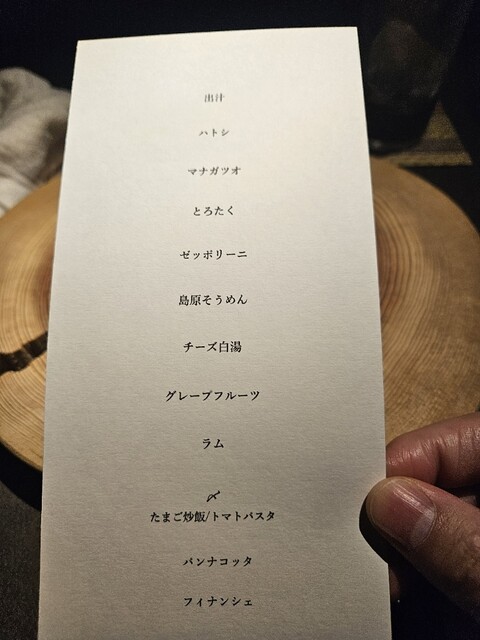 出汁
ハトシ
マナガツオ
とろたく
ゼッポリーニ
島原そうめん
チーズ白湯
グレープフルーツ
ラム
〆
たまご炒飯/トマトパスタ
パンナコッタ
フィナンシェ